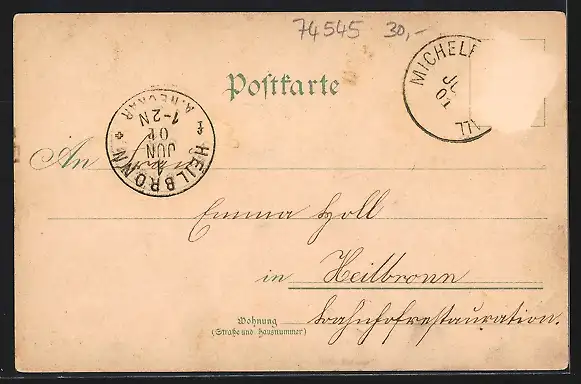 74545 30,-
Postkarte
MICHELF
JU
01
HEILBRONN
A. NECKAR
4
JUN
01
1-2N
An Frau
Emma Holl
in Heilbronn
Wohnung
(Straße und Hausnummer)
Bahnhofrestauration.